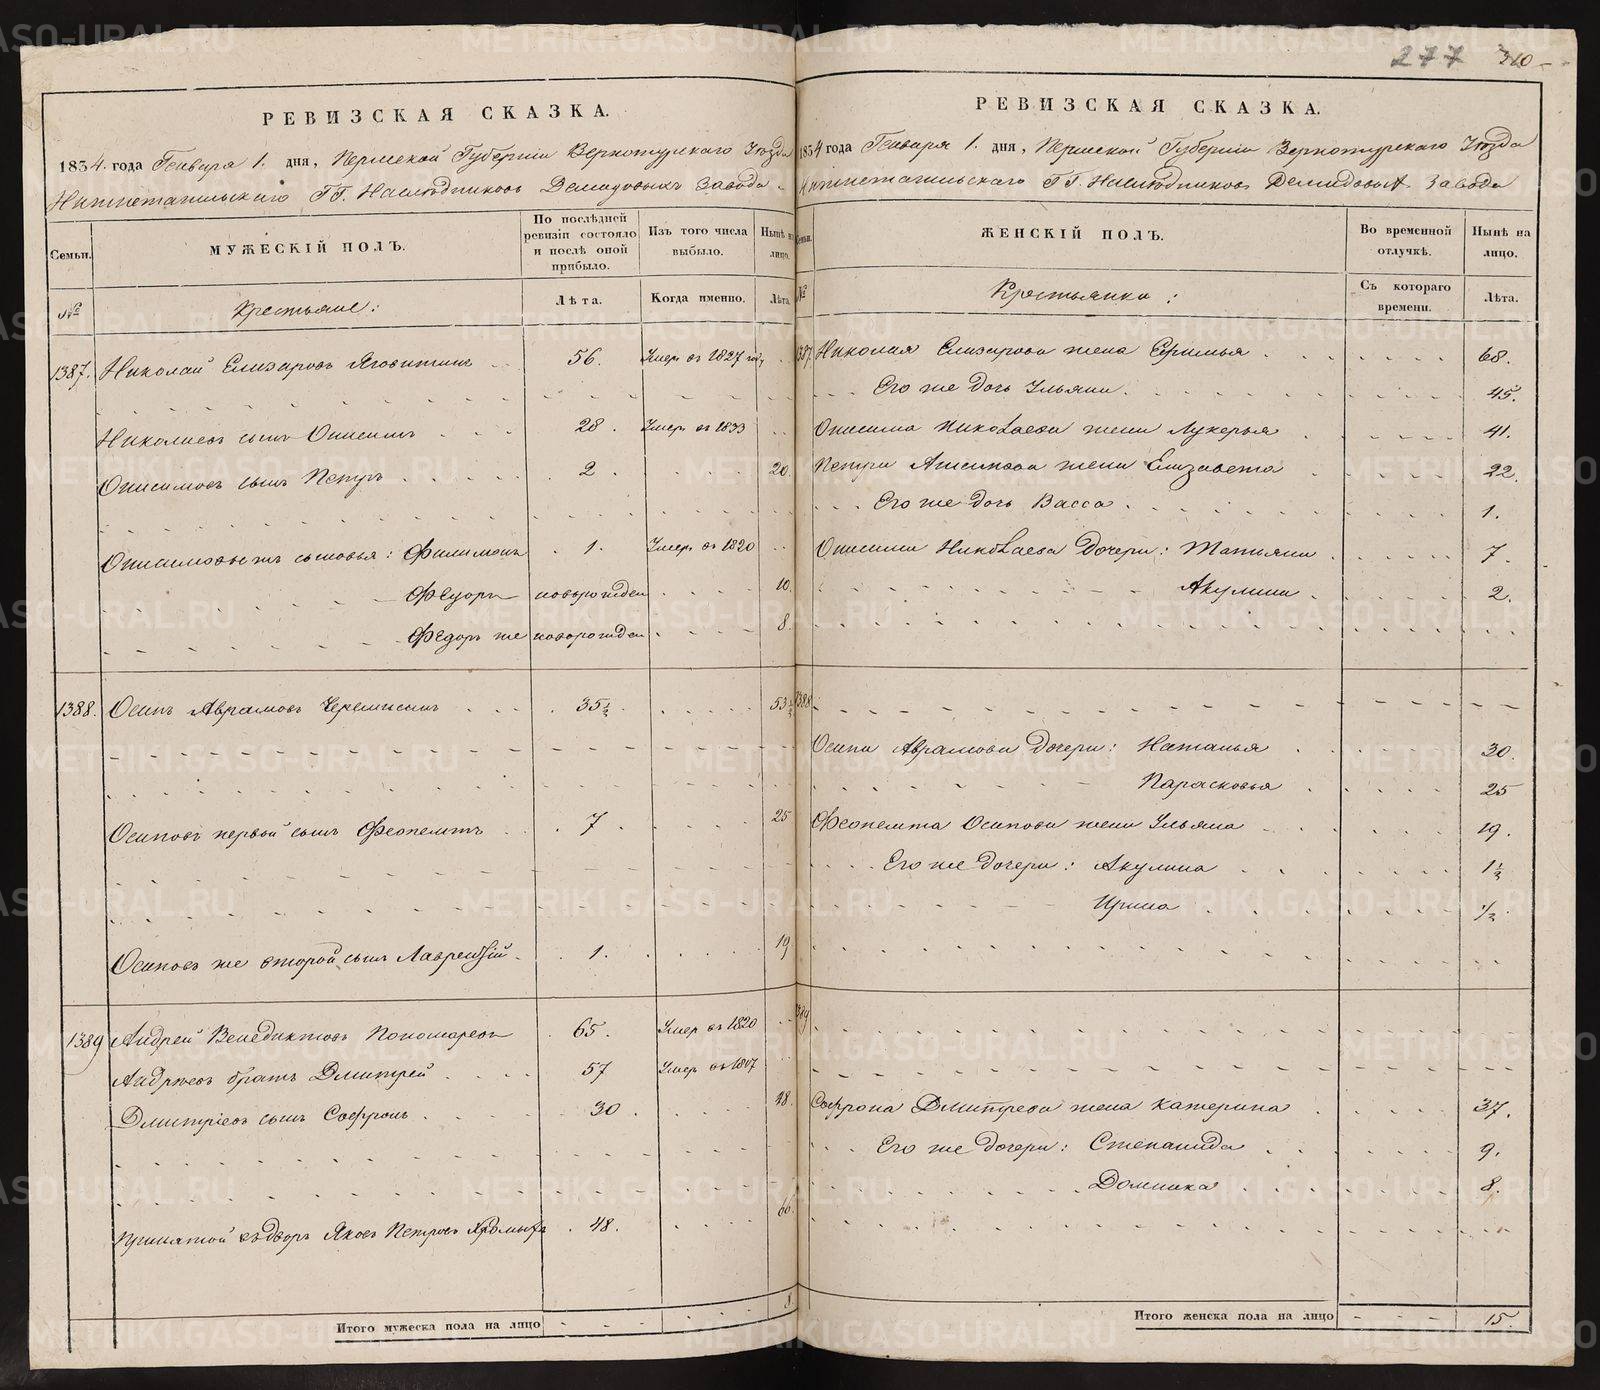 277 310
РЕВИЗСКАЯ СКАЗКА.
1834. года Генваря 1. дня, Пермской Губерніи Верхотурскаго Уѣзда
Нижнетагильскаго ГГ. Наслѣдниковъ Демидовыхъ Завода
Семьи.
МУЖЕСКІЙ ПОЛЪ.
По послѣдней ревизіи состояло и послѣ оной прибыло.
Изъ того числа выбыло.
Нынѣ на лицо.
№
Крестьяне:
Лѣта.
Когда именно.
Лѣта.
1387. Николай Елизаровъ 56. Умеръ въ 1827 году
Николаевъ сынъ Онисимъ 28. Умеръ въ 1833
Онисимовъ сынъ Петръ 2. 20.
Онисимовы же сыновья: Филимонъ 1. Умеръ въ 1820
Федоръ новорожден 10.
Федоръ же новорожден 8.
1388. Осипъ Аврамовъ Черемисинъ 35½ 53½
Осиповъ первой сынъ Феопемптъ 7. 25
Осиповъ же второй сынъ Лаврентій 1. 19
1389 Андрей Венедиктовъ Пономаревъ 65. Умеръ въ 1820
Андреевъ братъ Дмитрей 57 Умеръ въ 1817
Дмитріевъ сынъ Софронъ 30. 48.
Принятой въ дворъ Яковъ Петровъ Хромыхъ 48. 66.
Итого мужеска пола на лицо 8
РЕВИЗСКАЯ СКАЗКА.
1834 года Генваря 1. дня, Пермской Губерніи Верхотурскаго Уѣзда
Нижнетагильскаго ГГ. Наслѣдниковъ Демидовыхъ Завода
Семьи.
ЖЕНСКІЙ ПОЛЪ.
Во временной отлучкѣ.
Нынѣ на лицо.
№
Крестьянки:
Съ котораго времени.
Лѣта.
1387 Николая Елизарова жена Ефимья 68.
Его же дочь Ульяна 45.
Онисима Николаева жена Лукерья 41.
Петра Анисимова жена Елизавета 22.
Его же дочь Васса 1.
Онисима Николаева дочери: Татьяна 7.
Акулина 2.
1388
Осипа Аврамова дочери: Наталья 30.
Парасковья 25
Феопемта Осипова жена Ульяна 19.
Его же дочери: Акулина 1½
Ирина ½.
1389
Софрона Дмитрева жена Катерина 37.
Его же дочери: Степанида 9.
Домника 8.
Итого женска пола на лицо 15.
METRIKI.GASO-URAL.RU